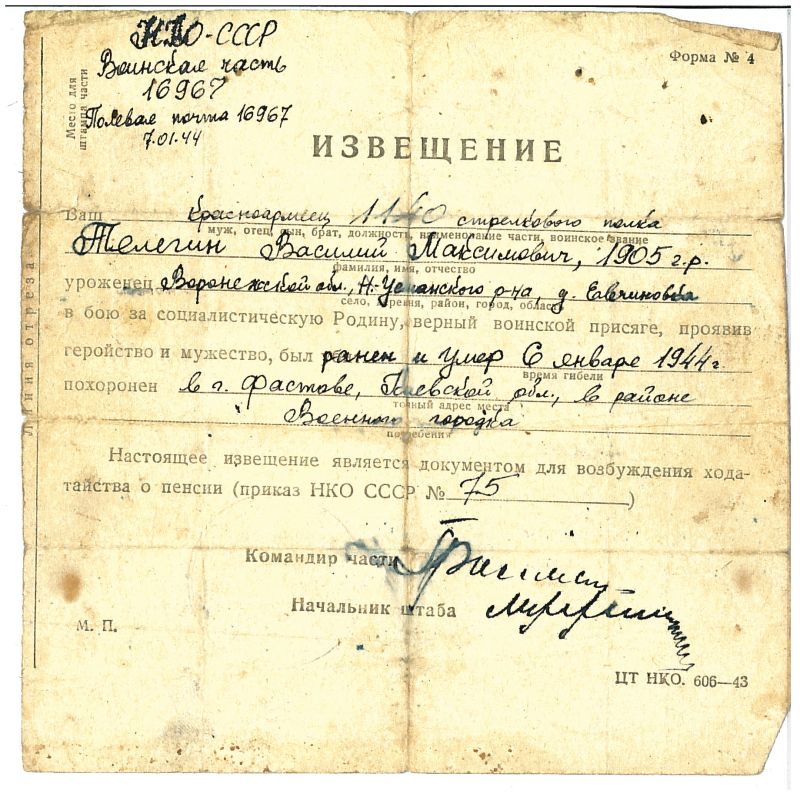 НКО-СССР
Воинская часть
16967
Полевая почта 16967
7.01.44
Место для
штампа части
Форма № 4
ИЗВЕЩЕНИЕ
Ваш красноармеец 1140 стрелкового полка
муж, отец, сын, брат, должность, наименование части, воинское звание
Телегин Василий Максимович, 1905 г.р.
фамилия, имя, отчество
уроженец Воронежской обл., Н-Усманского р-на, д. Евчиновка
село, деревня, район, город, область
в бою за социалистическую Родину, верный воинской присяге, проявив
геройство и мужество, был ранен и умер 6 января 1944 г.
время гибели
похоронен в г. Фастове, Киевской обл., в районе
точный адрес места
Военного городка
погребения
Настоящее извещение является документом для возбуждения хода-
тайства о пенсии (приказ НКО СССР № 75)
Командир части
Начальник штаба
М. П.
ЦТ НКО. 606—43
Линия отреза